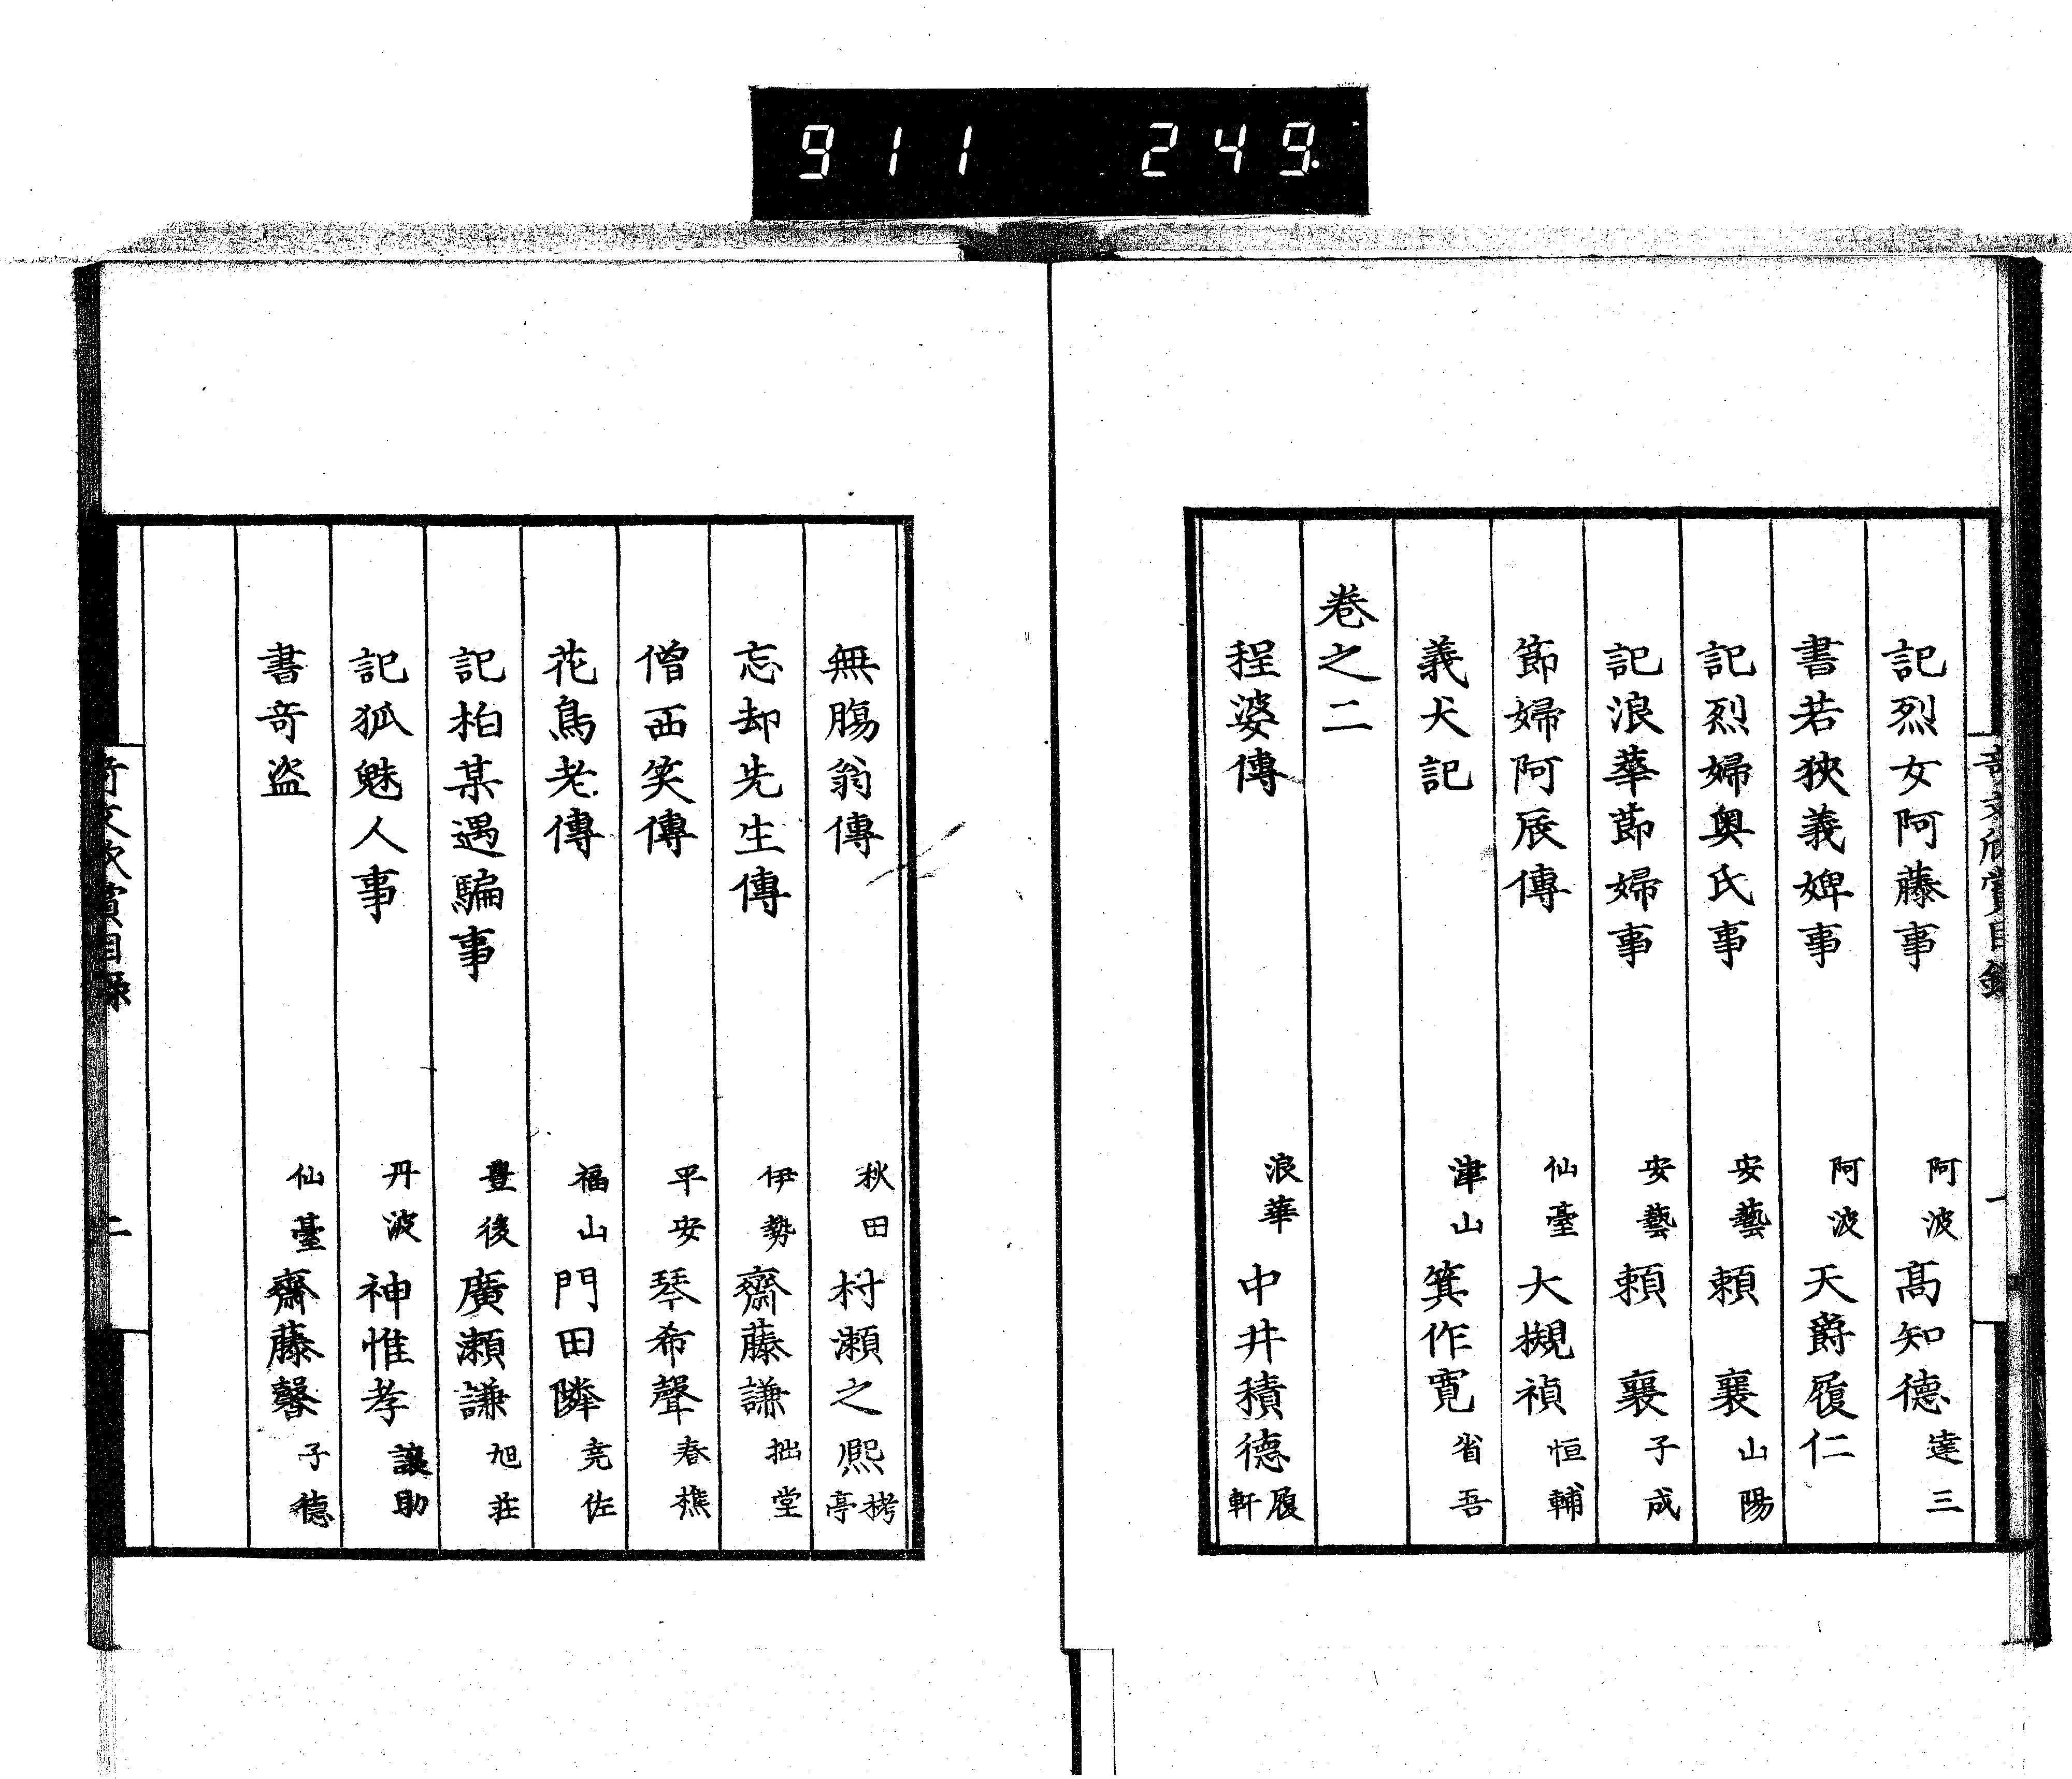 911 249
竒文欣賞目録 一
記烈女阿藤事 阿波 髙知德 達三
書若狹義婢事 阿波 天爵履仁
記烈婦奥氏事 安藝 頼襄 山陽
記浪華節婦事 安藝 頼襄 子成
節婦阿辰傳 仙臺 大槻禎 恒輔
義犬記 津山 箕作寛 省吾
巻之二
捏婆傳 浪華 中井積德 履軒
無膓翁傳 秋田 村瀬之熈 栲亭
忘却先生傳 伊勢 齋藤謙 拙堂
僧西笑傳 平安 琴希聲 春樵
花鳥老傳 福山 門田隣 尭佐
記柏某遇騙事 豊後 廣瀬謙 旭荘
記狐魅人事 丹波 神惟孝 讓助
書竒盗 仙臺 齋藤馨 子德
竒文欣賞目録 二